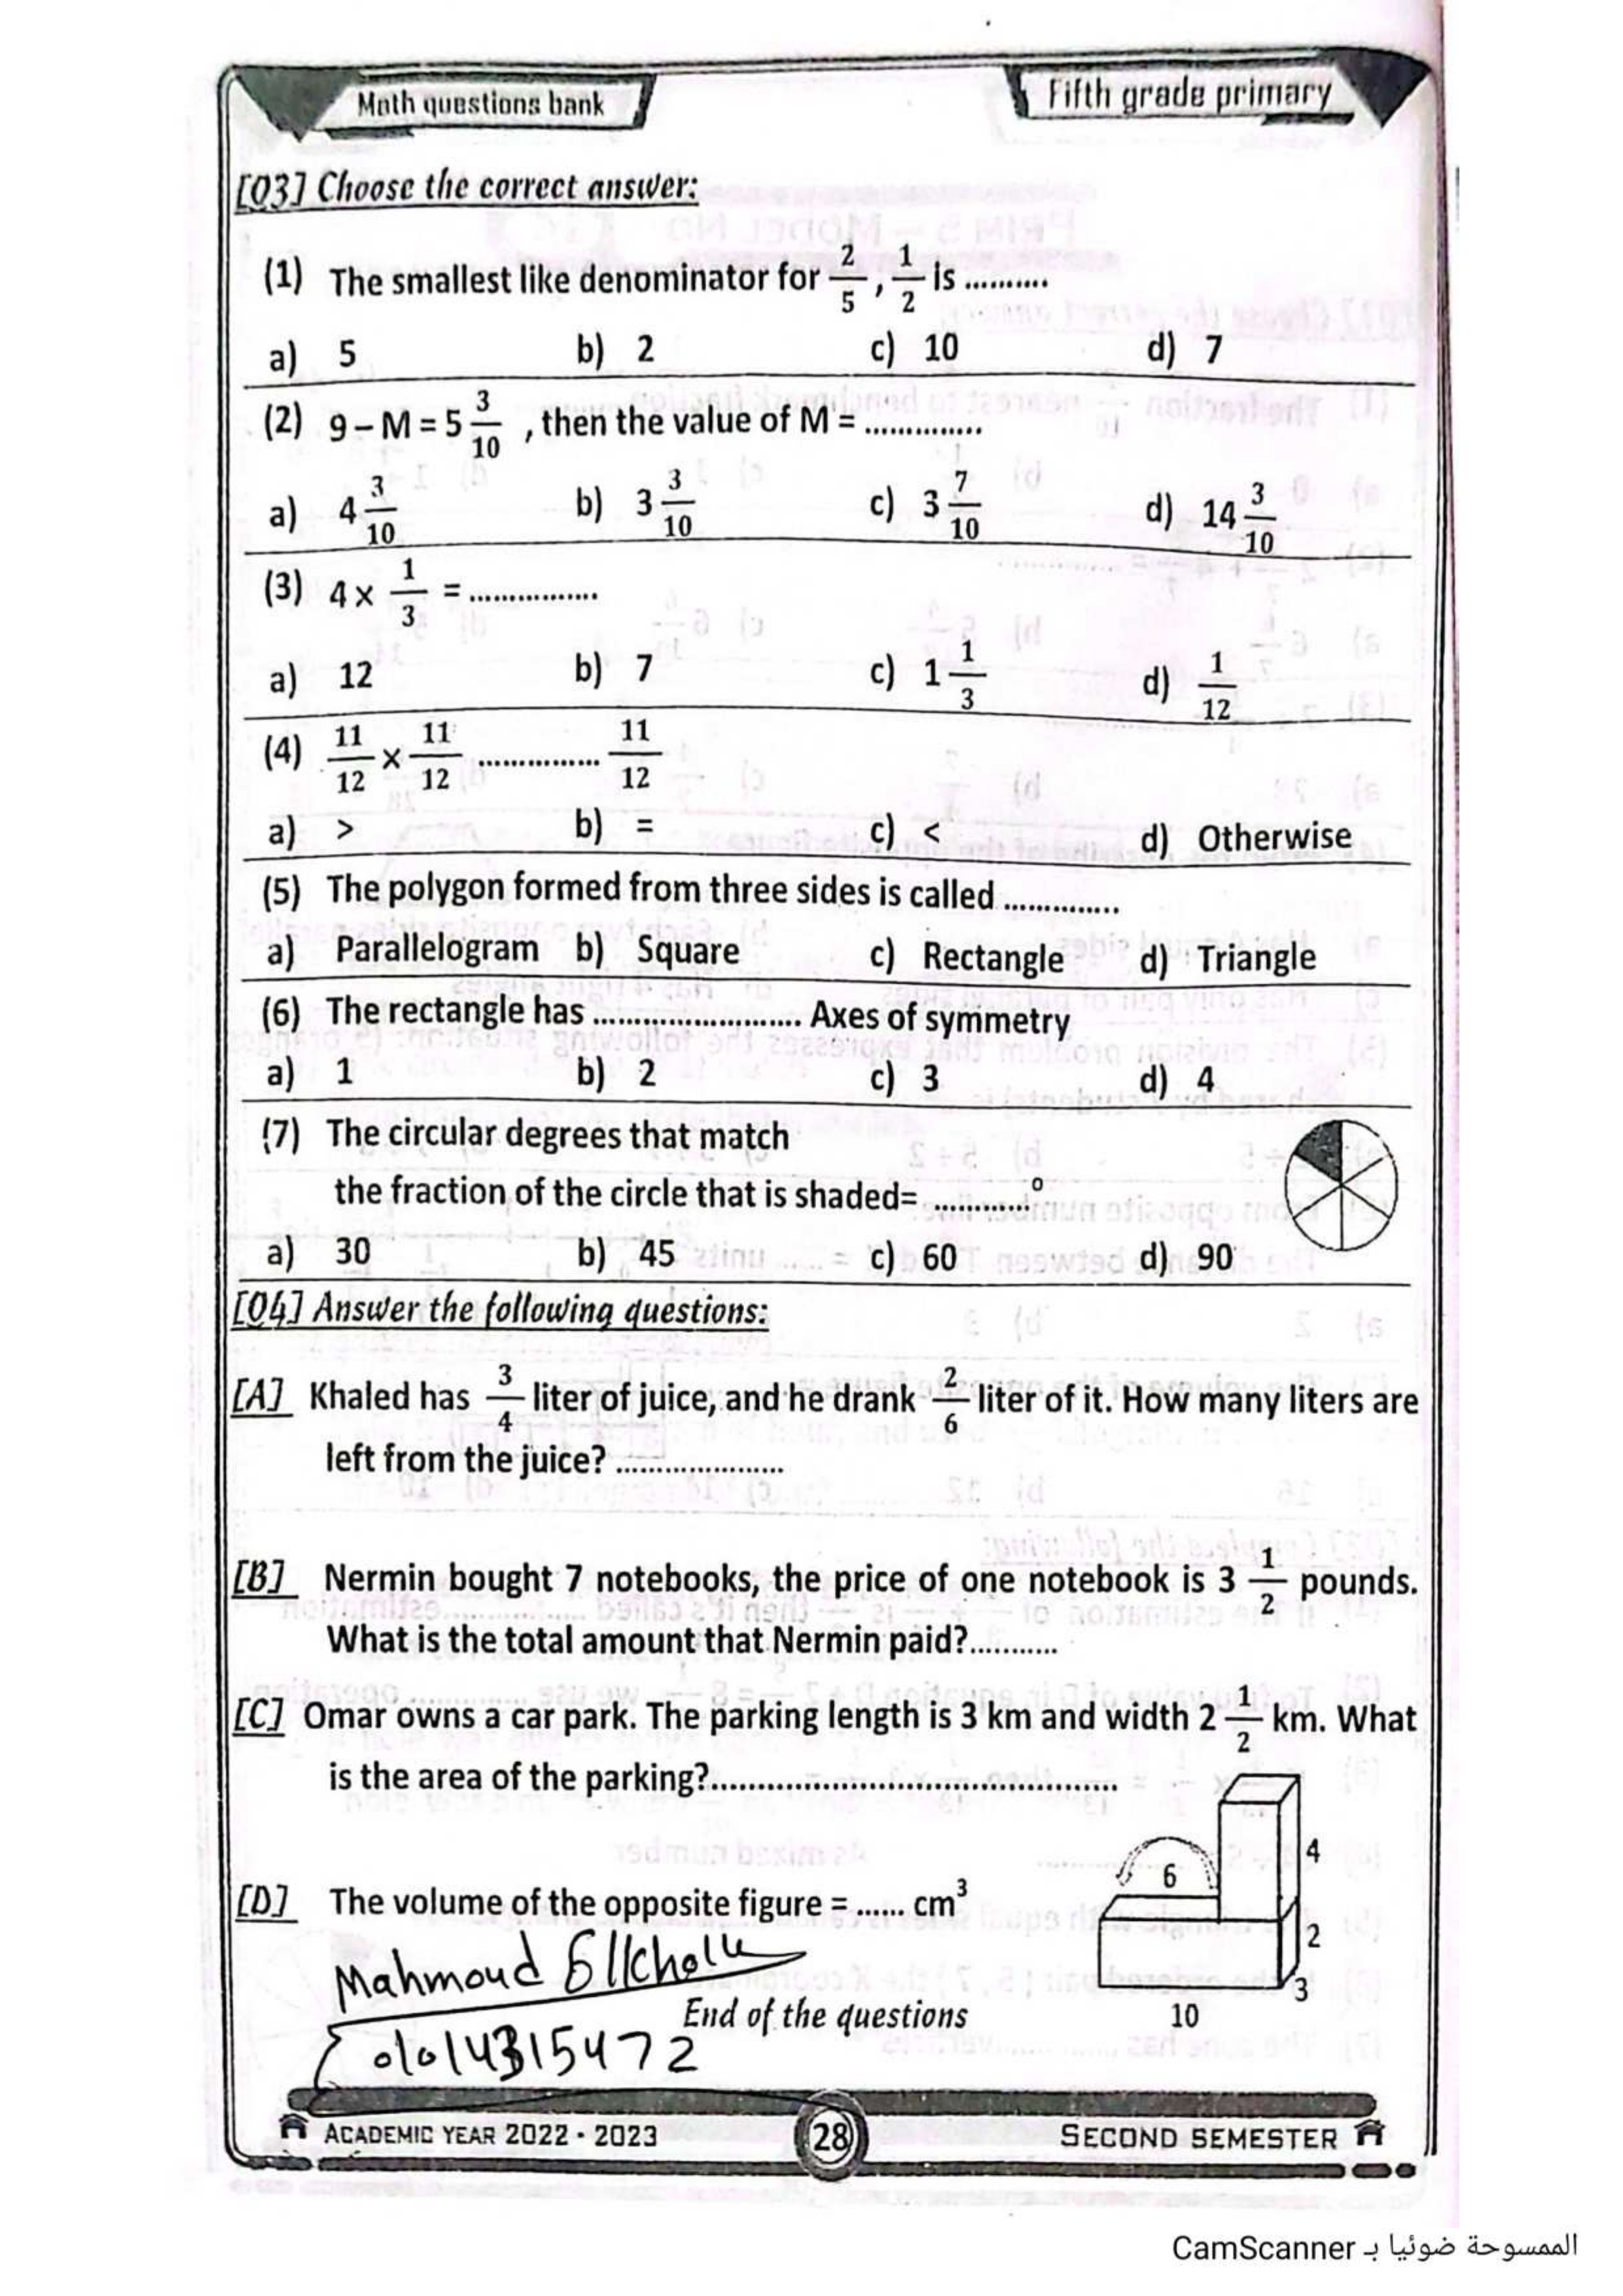 Math questions bank
Fifth grade primary
[Q3] Choose the correct answer:
(1) The smallest like denominator for 2/5 , 1/2 is ..........
a) 5 b) 2 c) 10 d) 7
(2) 9 – M = 5 3/10 , then the value of M = ..............
a) 4 3/10 b) 3 3/10 c) 3 7/10 d) 14 3/10
(3) 4 × 1/3 = ...............
a) 12 b) 7 c) 1 1/3 d) 1/12
(4) 11/12 × 11/12 ............... 11/12
a) > b) = c) < d) Otherwise
(5) The polygon formed from three sides is called ..............
a) Parallelogram b) Square c) Rectangle d) Triangle
(6) The rectangle has .......................... Axes of symmetry
a) 1 b) 2 c) 3 d) 4
(7) The circular degrees that match
the fraction of the circle that is shaded= ............°
a) 30 b) 45 c) 60 d) 90
[Q4] Answer the following questions:
[A] Khaled has 3/4 liter of juice, and he drank 2/6 liter of it. How many liters are
left from the juice? .....................
[B] Nermin bought 7 notebooks, the price of one notebook is 3 1/2 pounds.
What is the total amount that Nermin paid?...........
[C] Omar owns a car park. The parking length is 3 km and width 2 1/2 km. What
is the area of the parking?.................................................
4
6
[D] The volume of the opposite figure = ...... cm³
2
3
10
Mahmoud
End of the questions
01014315472
ACADEMIC YEAR 2022 - 2023
28
SECOND SEMESTER
الممسوحة ضوئيا بـ CamScanner